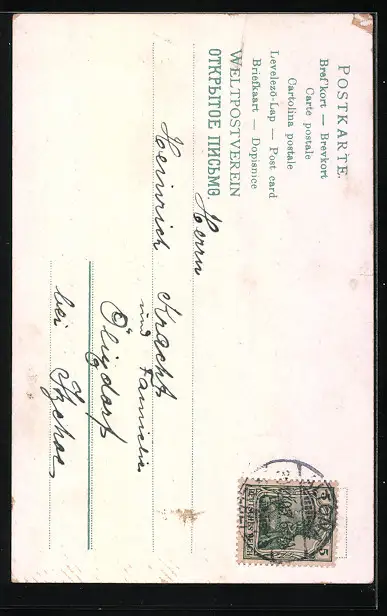 POSTKARTE.
Bref'kort — Brevkort
Carte postale
Cartolina postale
Levelező-Lap — Post card
Briefkaart — Dopisnice
WELTPOSTVEREIN
ОТКРЫТОЕ ПИСЬМО
Herrn
Heinrich Kracht
und Familie
Ölixdorf
bei Itzehoe
5 5
DEUTSCHES REICH